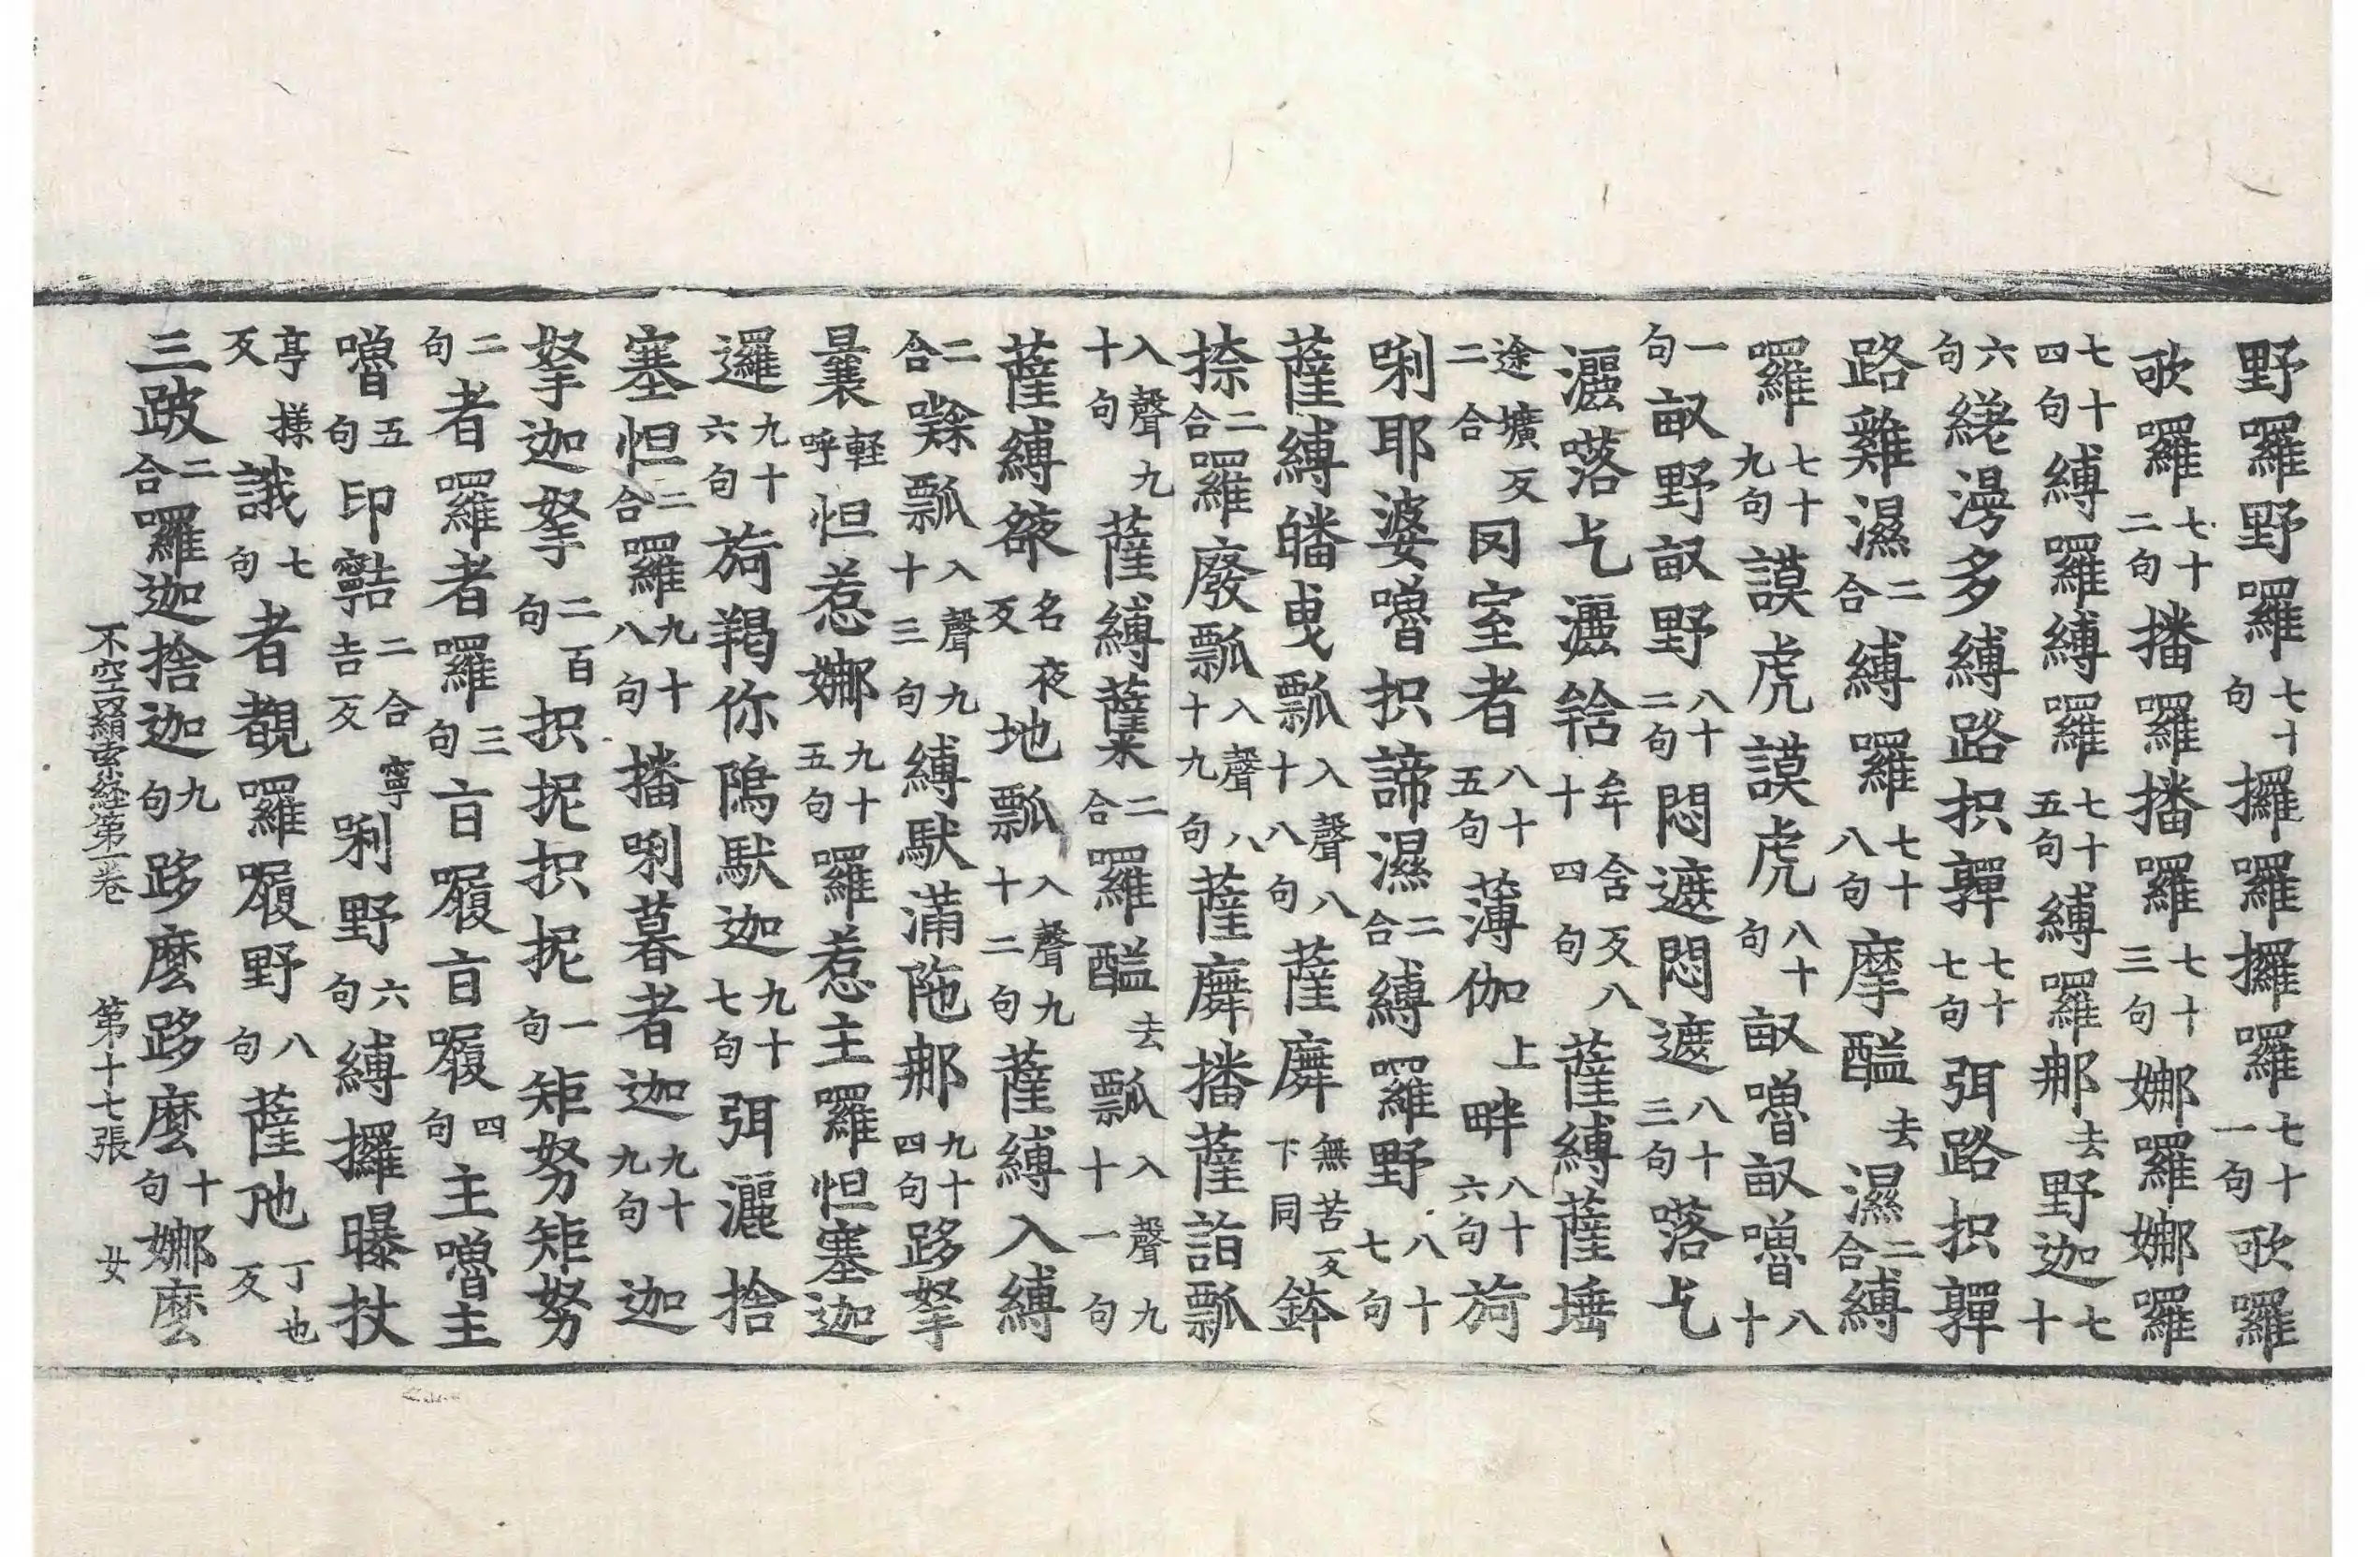 野囉野囉七十句攞囉攞囉七十一句歌囉
歌囉七十二句播囉播囉七十三句娜囉娜囉
七十四句縛囉縛囉七十五句縛囉那去野迦七十
六句繞漫多縛路抧鄲七十七句弭路抧鄲
路雞濕二合縛囉七十八句摩醯去濕二合縛
囉七十九句謨虎謨虎八十句畝嚕畝嚕八十
一句畝野畝野八十二句悶遮悶遮八十三句落乞
灑落乞灑牟舍反八十四句薩縛薩埵
途壙反二合罔室者八十五句薄伽上畔八十六句旖
唎耶婆嚕抧諦濕二合縛囉野八十七句
薩縛皤曳瓢入聲八十八句薩廗無苦反下同鉢
捺二合囉廢瓢入聲八十九句薩廗播薩詣瓢
入聲九十句薩縛二合囉醯去瓢入聲九十一句
薩縛名夜反地瓢入聲九十二句薩縛入縛
二合瓢入聲九十三句縛馱滿陁那九十四句跢拏
曩輕呼怛惹娜九十五句囉惹主囉怛塞迦
邏九十六句旖羯你隝馱迦九十七句弭灑捨
塞怛二合囉九十八句播唎暮者迦九十九句迦
拏迦拏二百句抧抳抧抳一句矩努矩努
二句者囉者囉三句㫖履㫖履四句主嚕主
嚕五句印二合寧吉反唎野六句縛攞曝扙
亭㨾反誐七句者覩囉履野八句薩虵丁也反
三跛二合囉迦捨迦九句跢麽跢麽十句娜麽
不空羂索經第一卷 第十七張 女